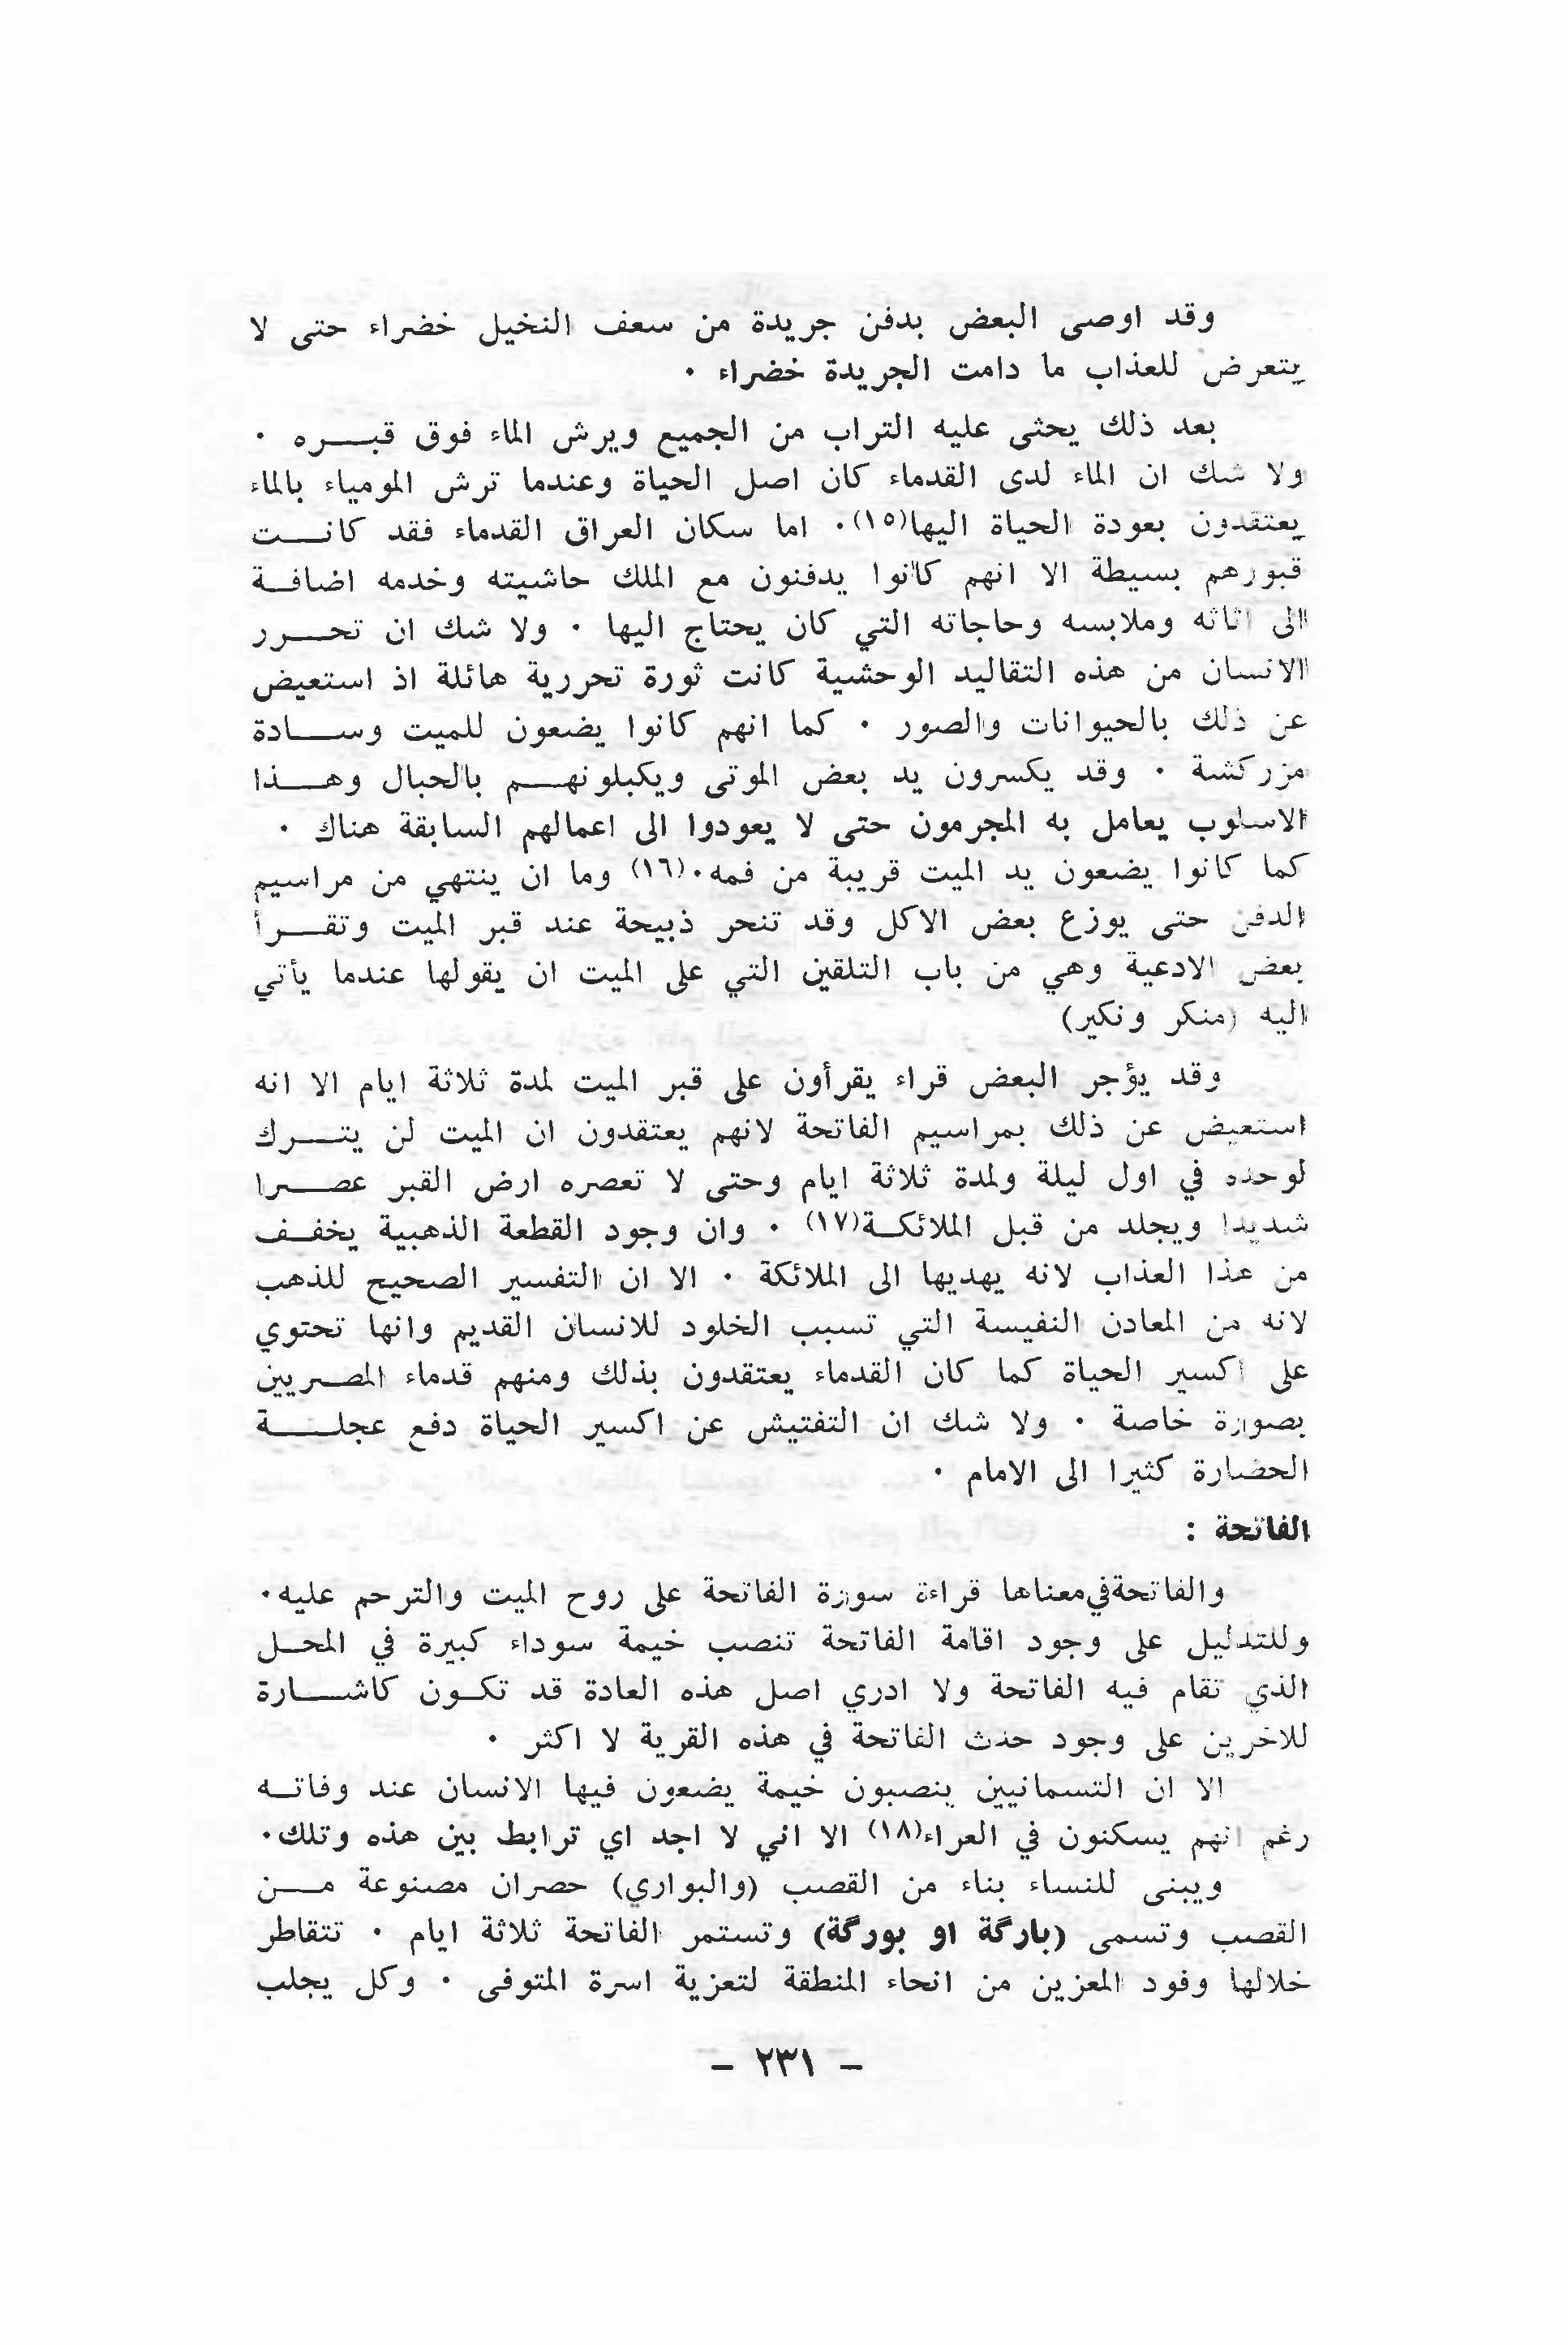 وقد اوصى البعض بدفن جريدة من سعف النخيل خضراء حتى لا
يتعرض للعذاب ما دامت الجريدة خضراء ٠
بعد ذلك يحثى عليه التراب من الجميع ويرش الماء فوق قبـــره ٠
ولا شك ان الماء لدى القدماء كان اصل الحياة وعندما ترش المومياء بالماء
يعتقدون بعودة الحياة اليها(١٥)٠ اما سكان العراق القدماء فقد كانـــت
قبورهم بسيطة الا انهم كانوا يدفنون مع الملك حاشيته وخدمه اضافـة
الى اثاثه وملابسه وحاجاته التي كان يحتاج اليها ٠ ولا شك ان تحـــرر
الانسان من هذه التقاليد الوحشية كانت ثورة تحررية هائلة اذ استعيض
عن ذلك بالحيوانات والصور ٠ كما انهم كانوا يضعون للميت وســـادة
مزركشة ٠ وقد يكسرون يد بعض الموتى ويكبلونهـــم بالحبال وهـــذا
الاسلوب يعامل به المجرمون حتى لا يعودوا الى اعمالهم السابقة هناك ٠
كما كانوا يضعون يد الميت قريبة من فمه٠(١٦) وما ان ينتهي من مراسيم
الدفن حتى يوزع بعض الاكل وقد تنحر ذبيحة عند قبر الميت وتقـــرأ
بعض الادعية وهي من باب التلقين التي على الميت ان يقولها عندما يأتي
اليه (منكر ونكير)
وقد يؤجر البعض قراء يقرأون على قبر الميت لمدة ثلاثة ايام الا انه
استعيض عن ذلك بمراسيم الفاتحة لانهم يعتقدون ان الميت لن يتـــرك
لوحده في اول ليلة ولمدة ثلاثة ايام وحتى لا تعصره ارض القبر عصـــرا
شديدا ويجلد من قبل الملائكـة(١٧) ٠ وان وجود القطعة الذهبية يخفـف
من هذا العذاب لانه يهديها الى الملائكة ٠ الا ان التفسير الصحيح للذهب
لانه من المعادن النفيسة التي تسبب الخلود للانسان القديم وانها تحتوي
على اكسير الحياة كما كان القدماء يعتقدون بذلك ومنهم قدماء المصـريين
بصورة خاصة ٠ ولا شك ان التفتيش عن اكسير الحياة دفع عجلـــة
الحضارة كثيرا الى الامام ٠
الفاتحة :
والفاتحة في معناها قراءة سورة الفاتحة على روح الميت والترحم عليه٠
وللتدليل على وجود اقامة الفاتحة تنصب خيمة سوداء كبيرة في المحـل
الذي تقام فيه الفاتحة ولا ادري اصل هذه العادة قد تكـون كاشـــارة
للاخرين على وجود حدث الفاتحة في هذه القرية لا اكثر ٠
الا ان التسمانيين ينصبون خيمة يضعون فيها الانسان عند وفاتـه
رغم انهم يسكنون في العراء(١٨) الا اني لا اجد اي ترابط بين هذه وتلك٠
ويبنى للنساء بناء من القصب (والبواري) حصران مصنوعة مـــن
القصب وتسمى (بارگة او بورگة) وتستمر الفاتحة ثلاثة ايام ٠ تتقاطر
خلالها وفود المعزين من انحاء المنطقة لتعزية اسرة المتوفى ٠ وكل يجلب
– ٢٣١ –